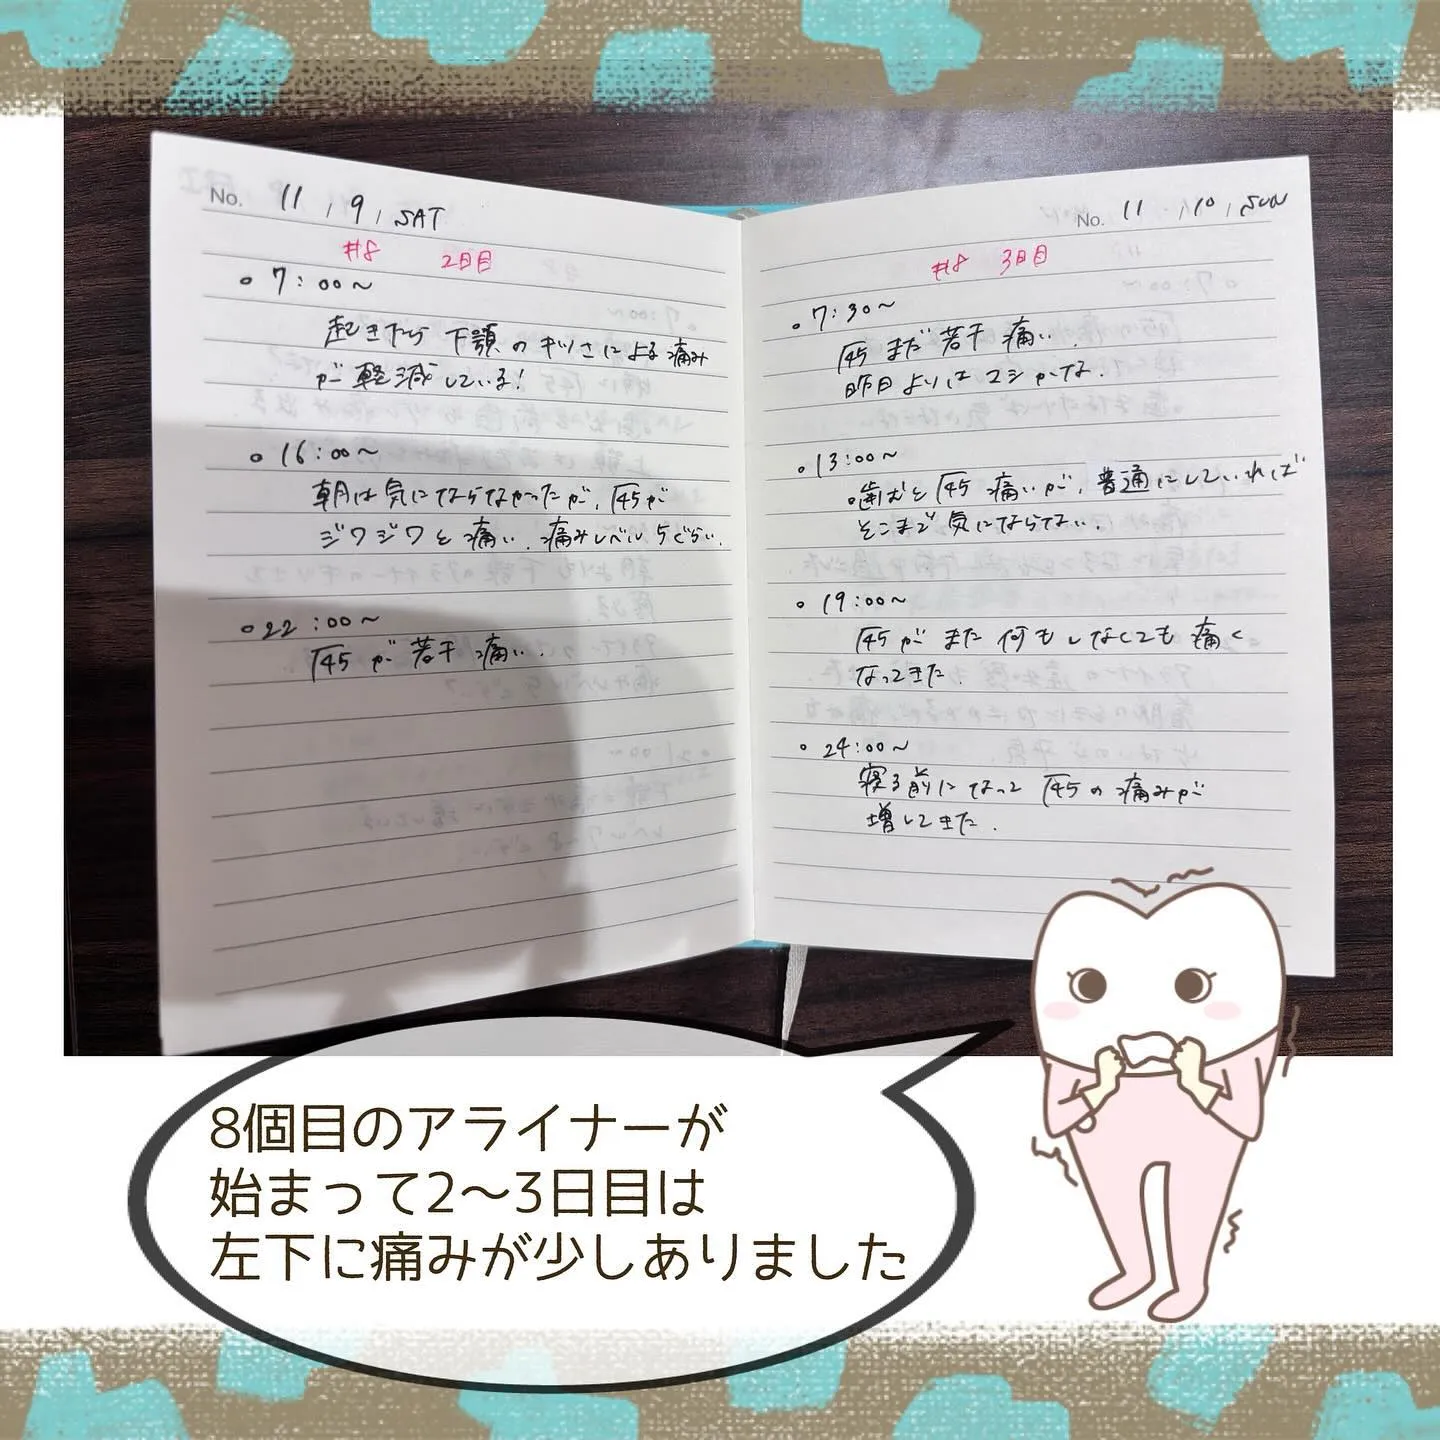 No. 11 , 9 , SAT
#8 2日目
○ 7:00~
起きたら 下顎のキツさによる痛み
が軽減している!
○ 16:00~
朝は気にならなかったが、「45が
ジワジワと痛い. 痛みレベル5ぐらい.
○ 22:00~
「45が若干痛い.
No. 11 , 10 , SUN
#8 3日目
○ 7:30~
「45まだ若干痛い.
昨日よりはマシかな.
○ 13:00~
噛むと「45痛いが、普通にしていれば
そこまで気にならない.
○ 19:00~
「45がまた何もしなくても痛く
なってきた.
○ 24:00~
寝る前になって「45の痛みが
増してきた.
8個目のアライナーが
始まって2〜3日目は
左下に痛みが少しありました